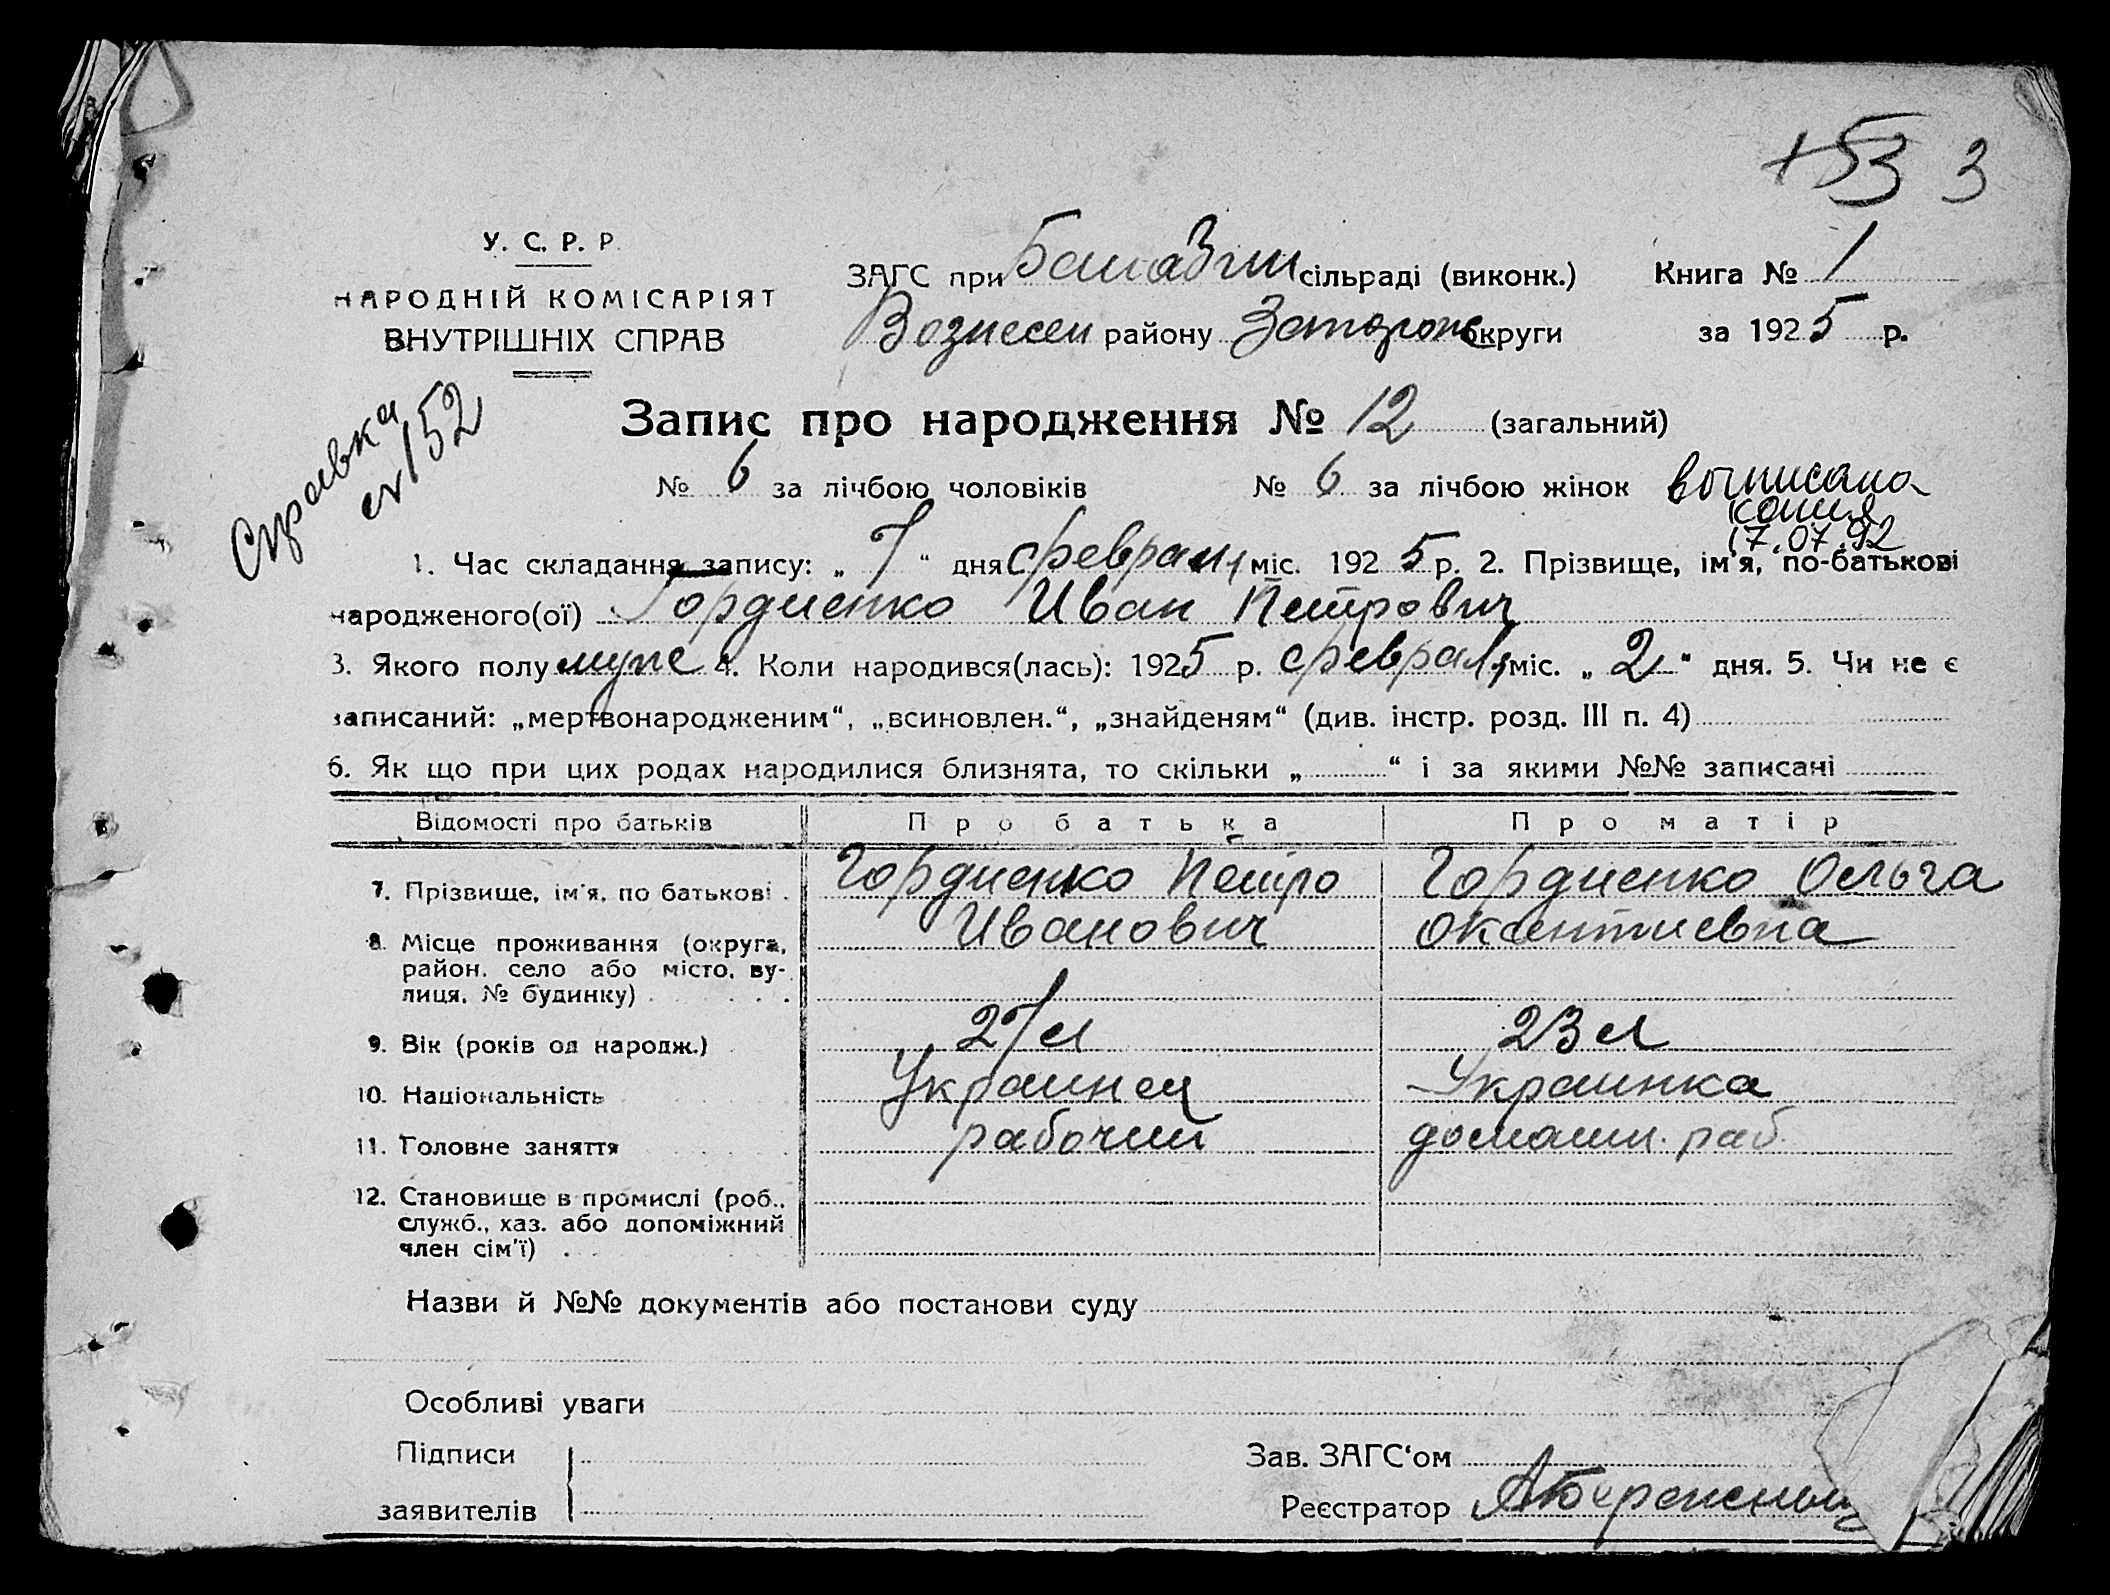 +53 3
У. С. Р. Р.
НАРОДНІЙ КОМІСАРІЯТ
ВНУТРІШНІХ СПРАВ
ЗАГС при сільраді (виконк.) Книга № 1
Вознесен району Запорож округи за 1925 р.
Справка
№152
Запис про народження № 12 (загальний)
№ 6 за лічбою чоловіків № 6 за лічбою жінок
выписана
копия
17.07.92
1. Час складання запису: „ 7 “ дня февраля міс. 1925 р. 2. Прізвище, ім'я, по-батькові
народженого(ої) Гордиенко Иван Петрович
3. Якого полу муже 4. Коли народився(лась): 1925 р. февраля міс. „ 2 “ дня. 5. Чи не є
записаний: „мертвонародженим“, „всиновлен.“, „знайденям“ (див. інстр. розд. III п. 4)
6. Як що при цих родах народилися близнята, то скільки „ “ і за якими №№ записані
Відомості про батьків Про батька Про матір
7. Прізвище, ім'я, по батькові . Гордиенко Петро Гордиенко Ольга
Иванович
8. Місце проживання (округа,
район, село або місто, ву-
лиця, № будинку)
9. Вік (років од народж.) 27 л 23 л
10. Національність Украинец Украинка
11. Головне заняття рабочий домашн. раб.
12. Становище в промислі (роб.,
служб., хаз. або допоміжний
член сім'ї) .
Назви й №№ документів або постанови суду
Особливі уваги
Підписи Зав. ЗАГС‘ом
заявителів Реєстратор